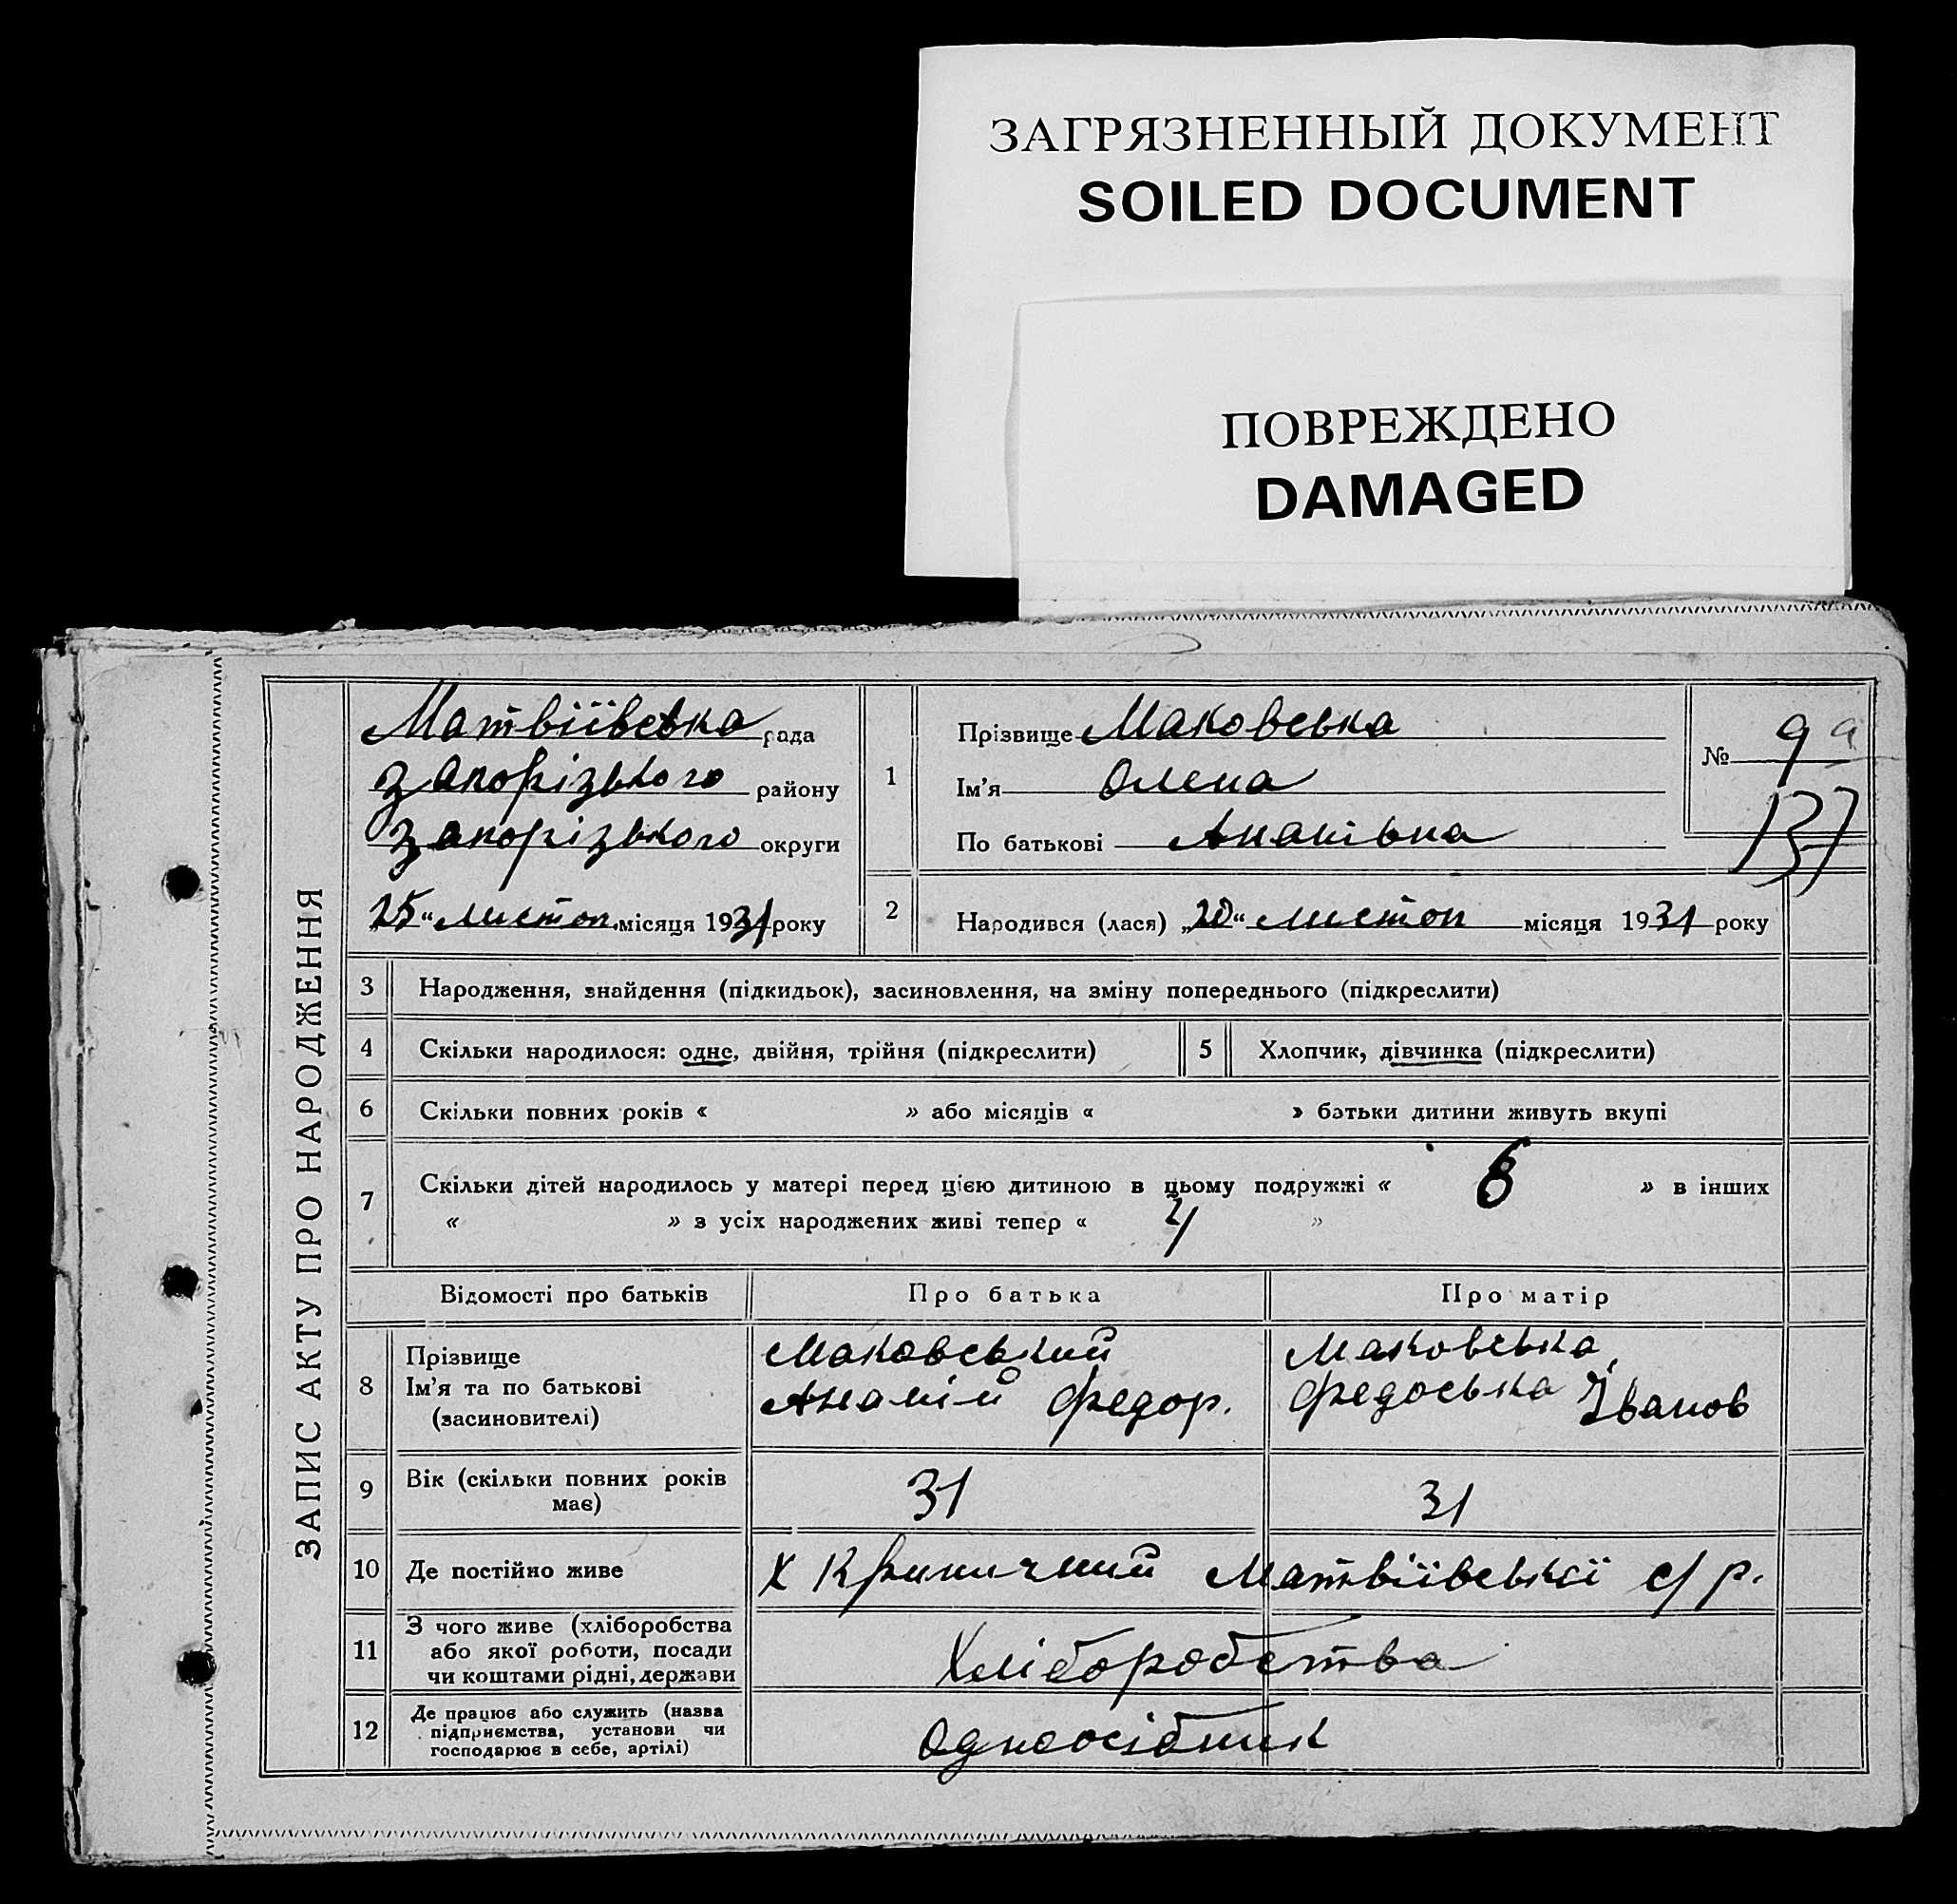 ЗАГРЯЗНЕННЫЙ ДОКУМЕНТ
SOILED DOCUMENT
ПОВРЕЖДЕНО
DAMAGED
ЗАПИС АКТУ ПРО НАРОДЖЕННЯ
Матвіївська рада
Запорізького району
Запорізького округи
25 “ листоп. місяця 1931 року
1
Прізвище Маковська
Ім'я Олена
По батькові Ананівна
№ 9
137
2 Народився (лася) „20“ листоп місяця 1931 року
3 Народження, знайдення (підкидьок), засиновлення, на зміну попереднього (підкреслити)
4 Скільки народилося: одне, двійня, трійня (підкреслити) 5 Хлопчик, дівчинка (підкреслити)
6 Скільки повних років « » або місяців « » батьки дитини живуть вкупі
7 Скільки дітей народилось у матері перед цією дитиною в цьому подружжі « » в інших
« » з усіх народжених живі тепер « »
Відомості про батьків Про батька Про матір
8 Прізвище Маковський Маковська
Ім'я та по батькові Ананій Федор. Федоська Іванов
(засиновителі)
9 Вік (скільки повних років має) 31 31
10 Де постійно живе Х Криничний Матвіївської с/р.
11 З чого живе (хліборобства
або якої роботи, посади
чи коштами рідні, держави Хліборобства
12 Де працює або служить (назва
підприємства, установи чи
господарює в себе, артілі) Одноосібник